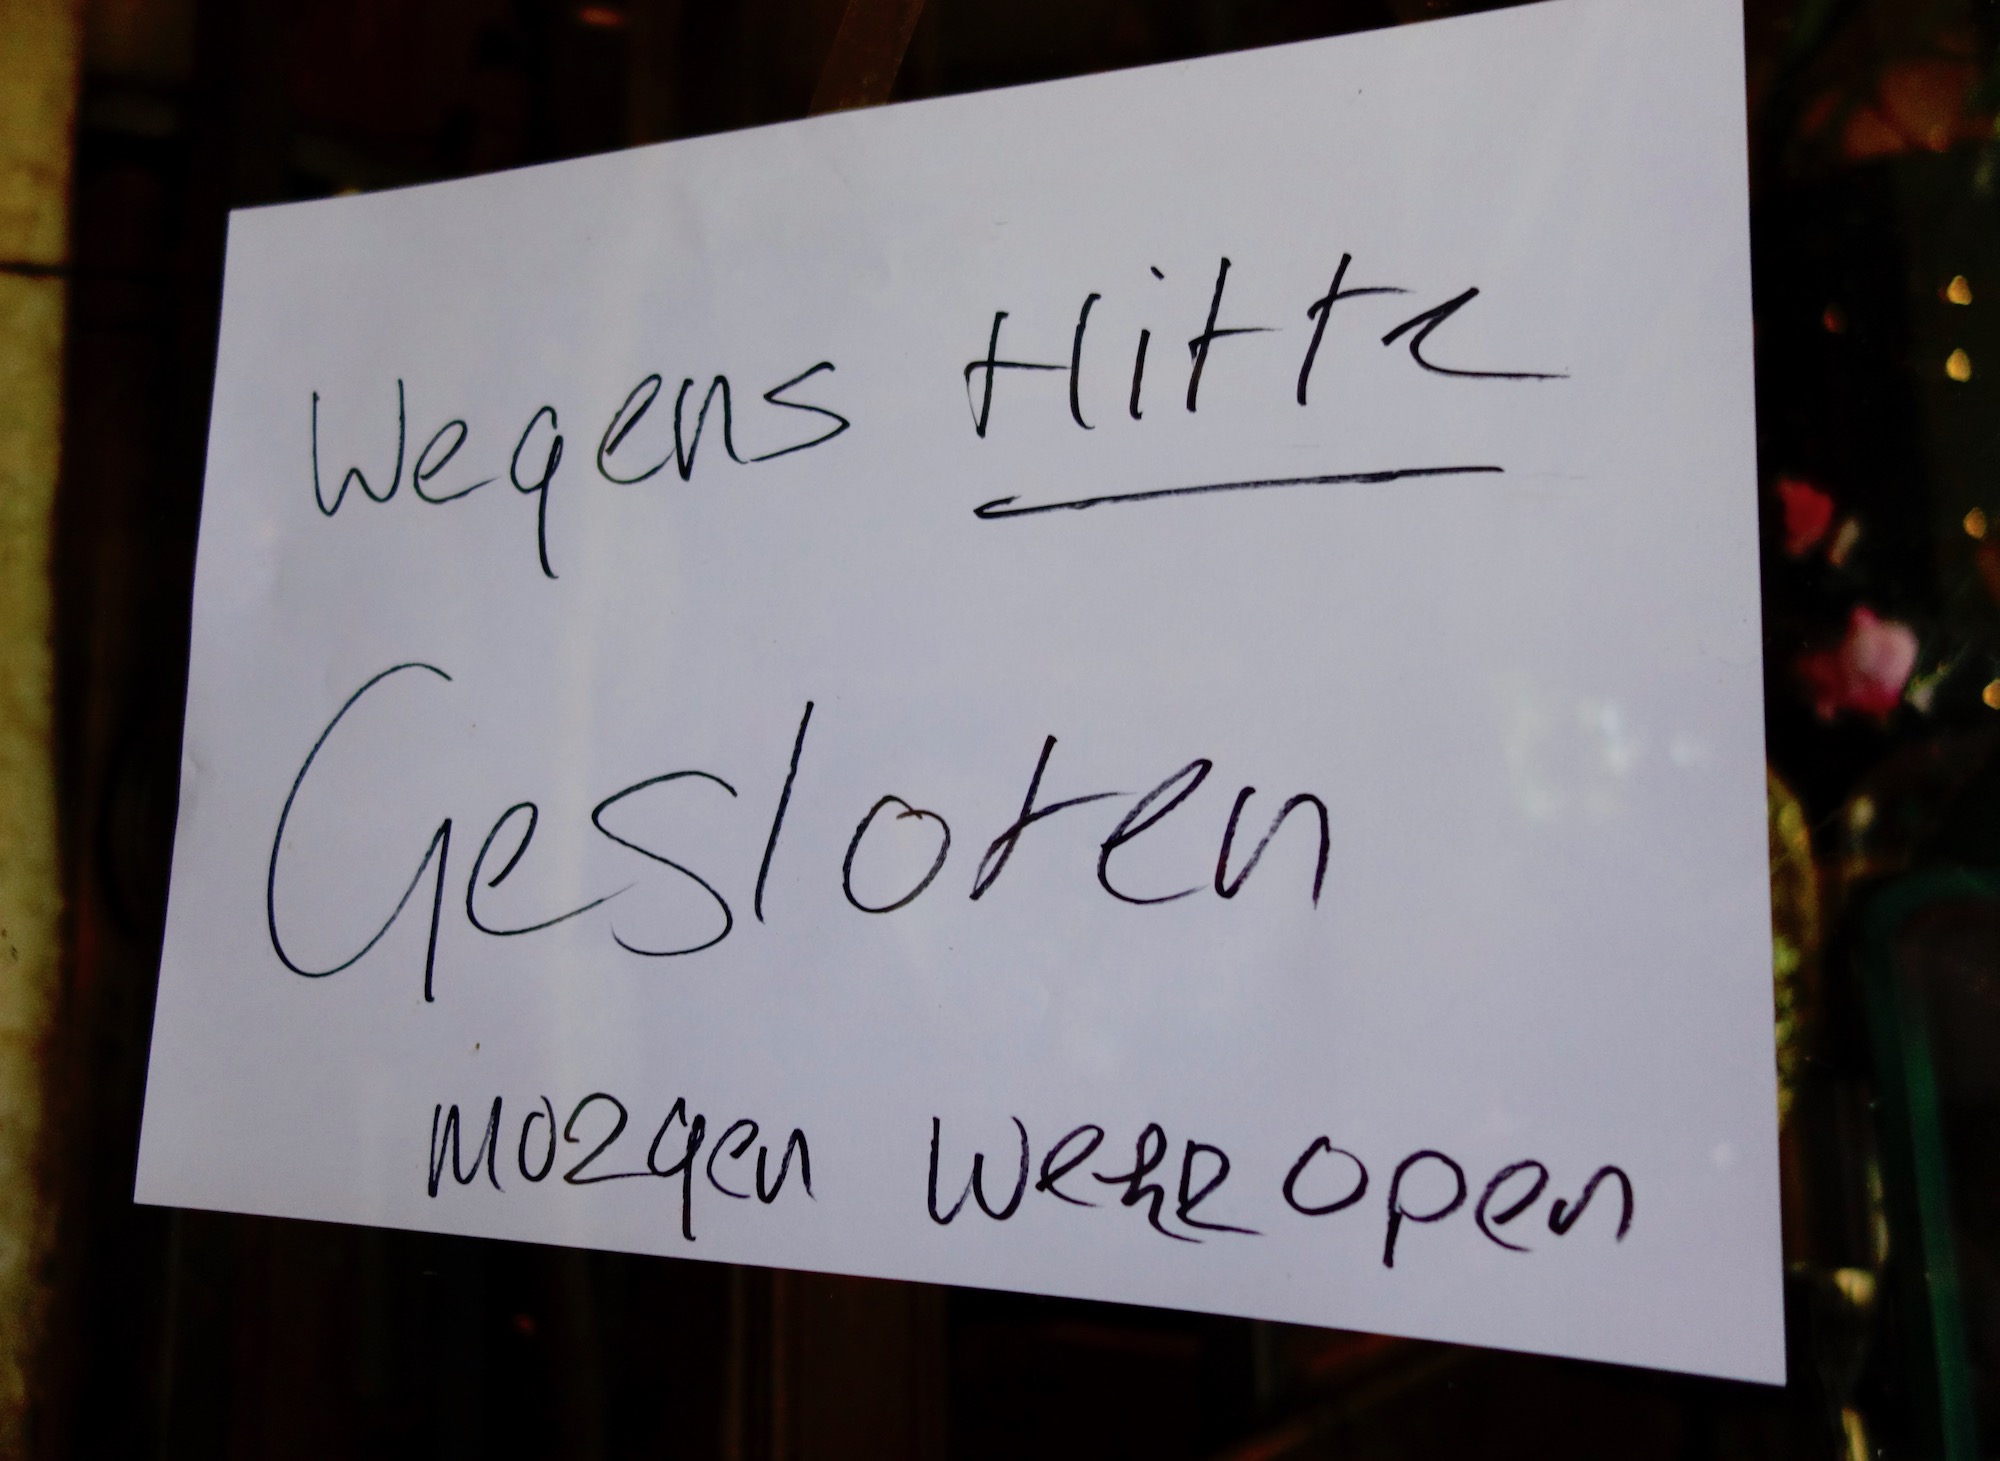 wegens Hitte
Gesloten
morgen weer open